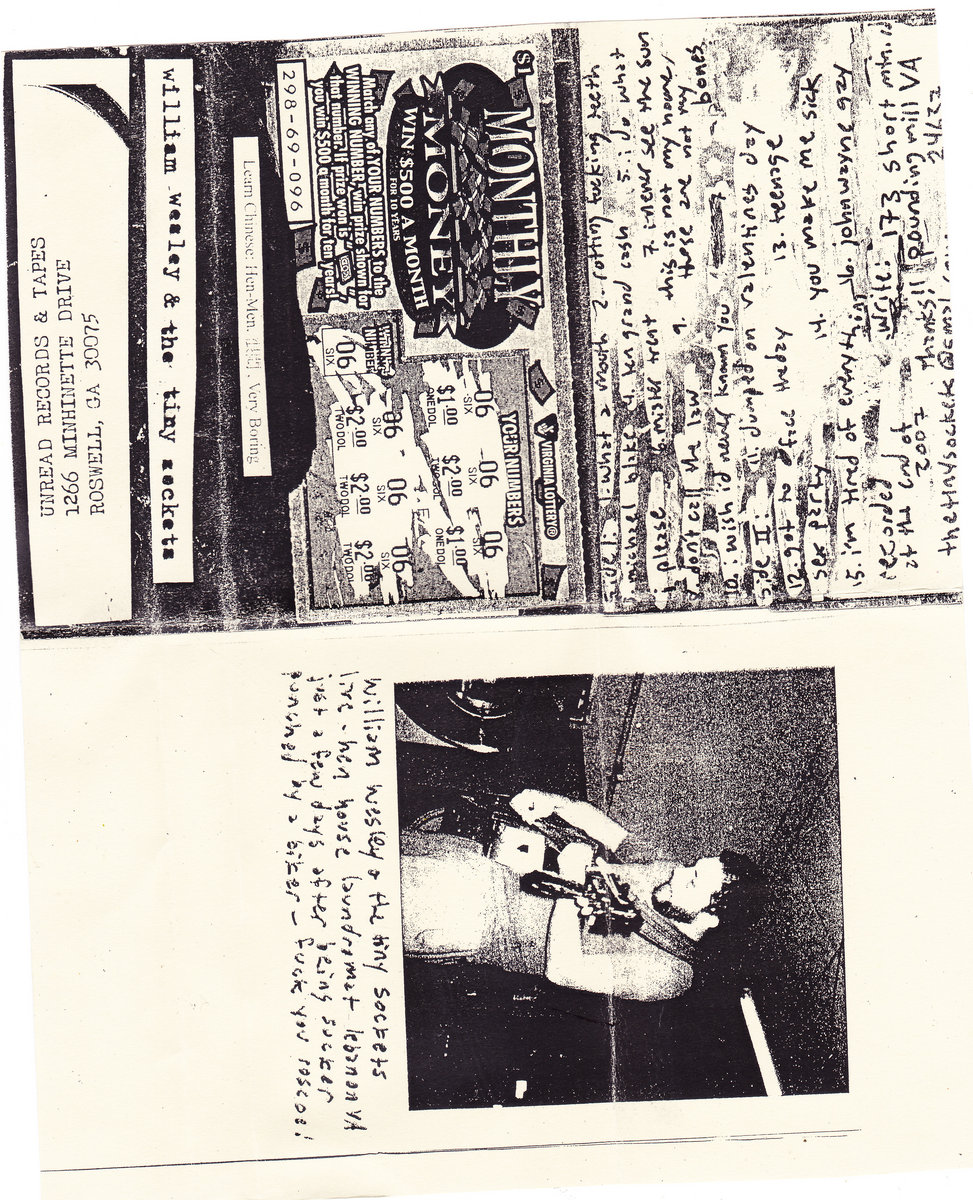 UNREAD RECORDS & TAPES
1266 MINHINETTE DRIVE
ROSWELL, GA 30075
william wesley & the tiny sockets
Learn Chinese: Hen-Men. Very Boring
$1
MONTHLY
MONEY
WIN $500 A MONTH
FOR 10 YEARS
Match any of YOUR NUMBERS to the
WINNING NUMBER, win prize shown for
that number. If prize won is
you win $500 a month for ten years!
298-69-096
VIRGINIA LOTTERY®
YOUR NUMBERS
WINNING
NUMBER
06
SIX
06
SIX
$1.00
ONEDOL
06
SIX
$2.00
TWODOL
06
SIX
$1.00
ONEDOL
06
SIX
$2.00
TWODOL
06
SIX
$2.00
TWODOL
06
SIX
$2.00
TWODOL
side I: 1. what a mouth 2. rotting fucking teeth
3. michael blaze 4. ten grand cash 5. i do what
i please 6. mister trent 7. i never see the sun
8. dont call the law 9. this is not my home,
these are not my bones.
10. i wish id never known you
side II: 11. dumped on valentines day
12. got to defeat the day 13. teenage
sex party 14. you make me sick
15. im tired of everything 16. johnwayne gay
recorded at the end of 2007
write: 173 short mtn. rd
pounding mill VA
24122
thanks!!
thetinysockets@
william wesley & the tiny sockets
live - hen house laundromat lebanon VA
just a few days after being sucker
punched by a biker - fuck you roscoe!